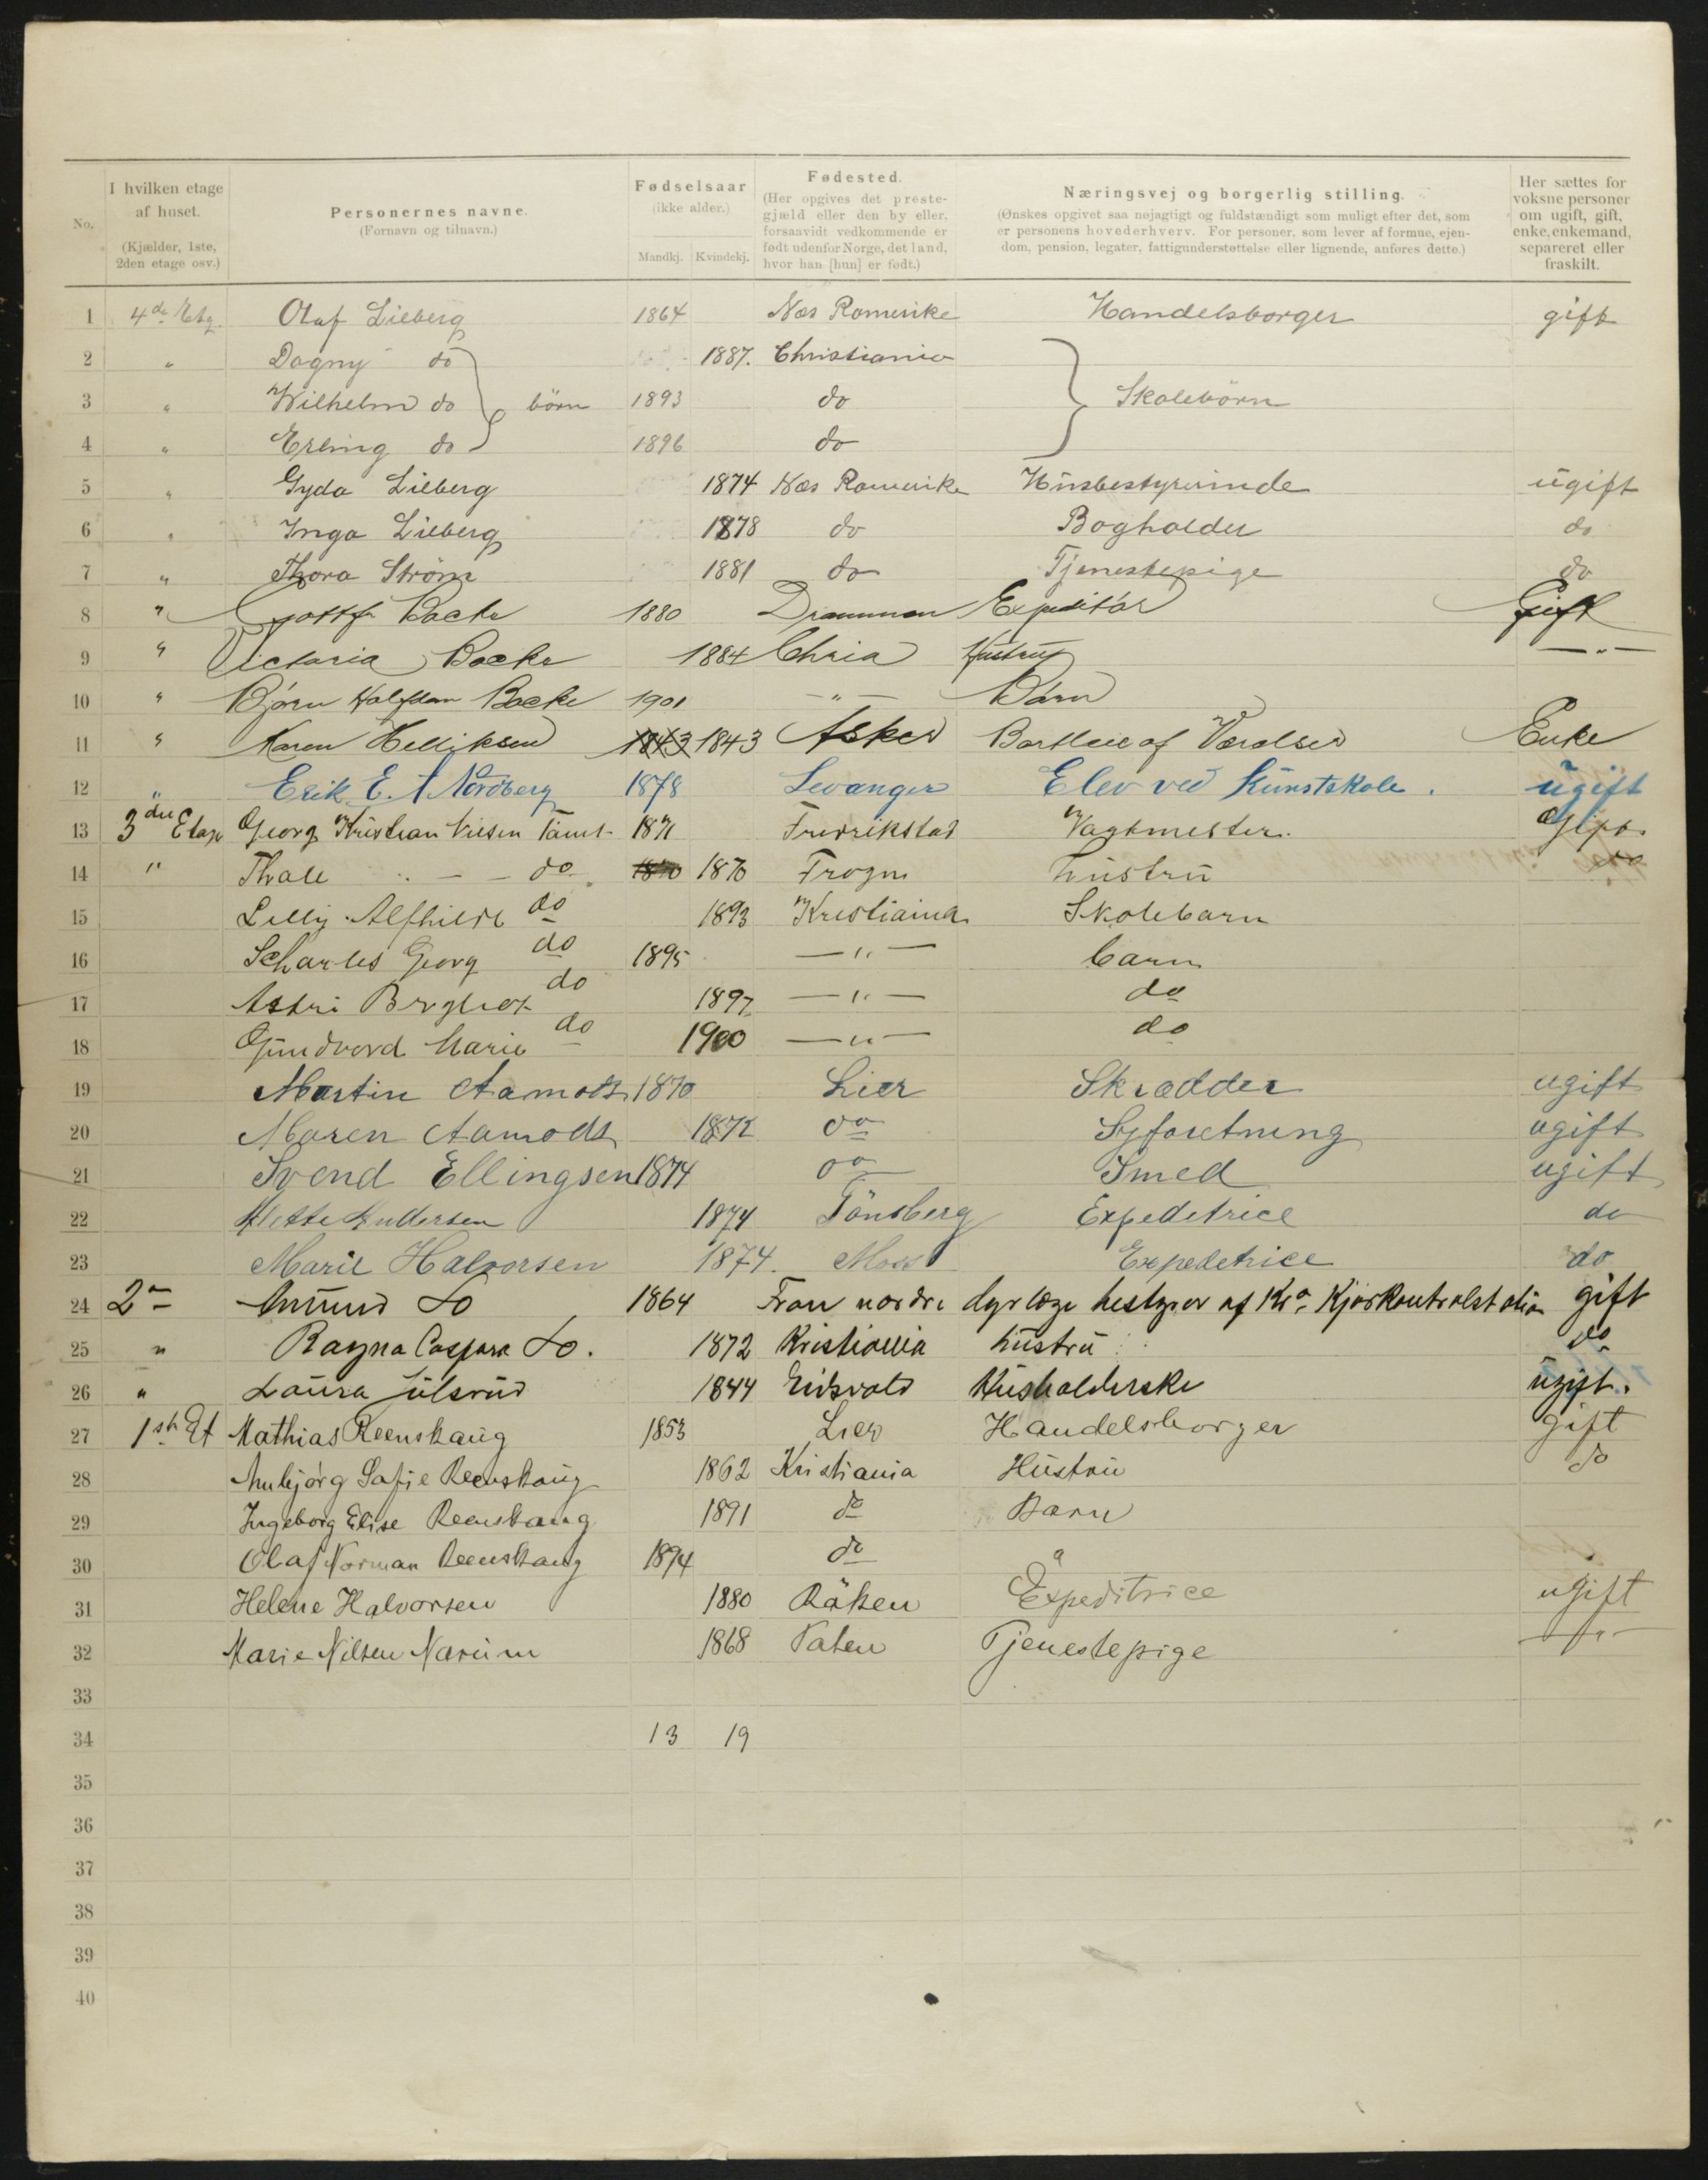 No.
I hvilken etage
af huset.
(Kjælder, 1ste,
2den etage osv.)
Personernes navne.
(Fornavn og tilnavn.)
Fødselsaar
(ikke alder.)
Mandkj. Kvindekj.
Fødested.
(Her opgives det preste-
gjæld eller den by eller,
forsaavidt vedkommende er
født udenfor Norge, det land,
hvor han [hun] er født.)
Næringsvej og borgerlig stilling.
(Ønskes opgivet saa nøjagtigt og fuldstændigt som muligt efter det, som
er personens hovederhverv. For personer, som lever af formue, ejen-
dom, pension, legater, fattigunderstøttelse eller lignende, anføres dette.)
Her sættes for
voksne personer
om ugift, gift,
enke, enkemand,
separeret eller
fraskilt.
1 4de Etg. Olaf Lieberg 1864 Næs Romerike Handelsborger gift
2 " Dagny do 1887. Christiania
3 " Wilhelm do børn 1893 do Skolebörn
4 " Erling do 1896 do
5 " Gyda Lieberg 1874 Næs Romerike Husbestyrerinde ugift
6 " Inga Lieberg 1878 do Bogholder do
7 " Thora Ström 1881 do Tjenestepige do
8 " Backe 1880 Drammen Expeditør Gift
9 " Victoria Backe 1884 Chria Hustru — " —
10 " Bjørn Halfdan Backe 1901 — " — Barn
11 " Karen Helliksen 1843 1843 Asker Enke
12 " Erik E. A Nordberg 1878 Levanger Elev ved Kunstskole. ugift
13 3die Etage Georg Kristian 1871 Fredrikstad Vagtmester. Gift
14 " Thale " — — do 1870 Frogn hustru do
15 Lilly Alfhild do 1893 Kristiania Skolebarn
16 Scharles Georg do 1895 — " — barn
17 Astri do 1897 — " — do
18 Gundvord Marie do 1900 — " — do
19 Martin Aamodt 1870 Lier Skrædder ugift
20 Maren Aamodt 1872 do Syforetning ugift
21 Svend Ellingsen 1874 do Smed ugift
22 Mette Andersen 1874 Tönsberg Expeditrice do
23 Marie Halvorsen 1874. Moss Expedetrice do
24 2n Amund Lo 1864 Fron nordre dyrlæge bestyrer af Kra Kjødkontrolstation gift
25 " Ragna Caspara Lo. 1872 Kristiania hustru do
26 " Laura Julsrud 1844 Eidsvold Husholderske ugift.
27 1ste Et Mathias Reenskaug 1853 Lier Handelsborger gift
28 Anbjørg Sofie Reenskaug 1862 Kristiania Hustru do
29 Ingeborg Elise Reenskaug 1891 do Barn
30 Olaf Norman Reenskaug 1894 do "
31 Helene Halvorsen 1880 Röken Expeditrice ugift
32 Marie Nilsen Narum 1868 Toten Tjenestepige — " —
33
34 13 19
35
36
37
38
39
40